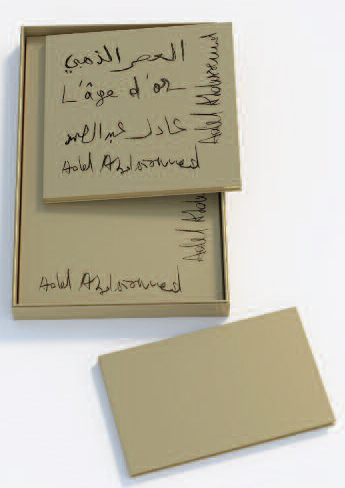 العصر الذهبي
L'âge d'or
عادل عبد الصمد
Adel Abdessemed
Adel Abdessemed
Adel Abdessemed
Adel Abdessemed